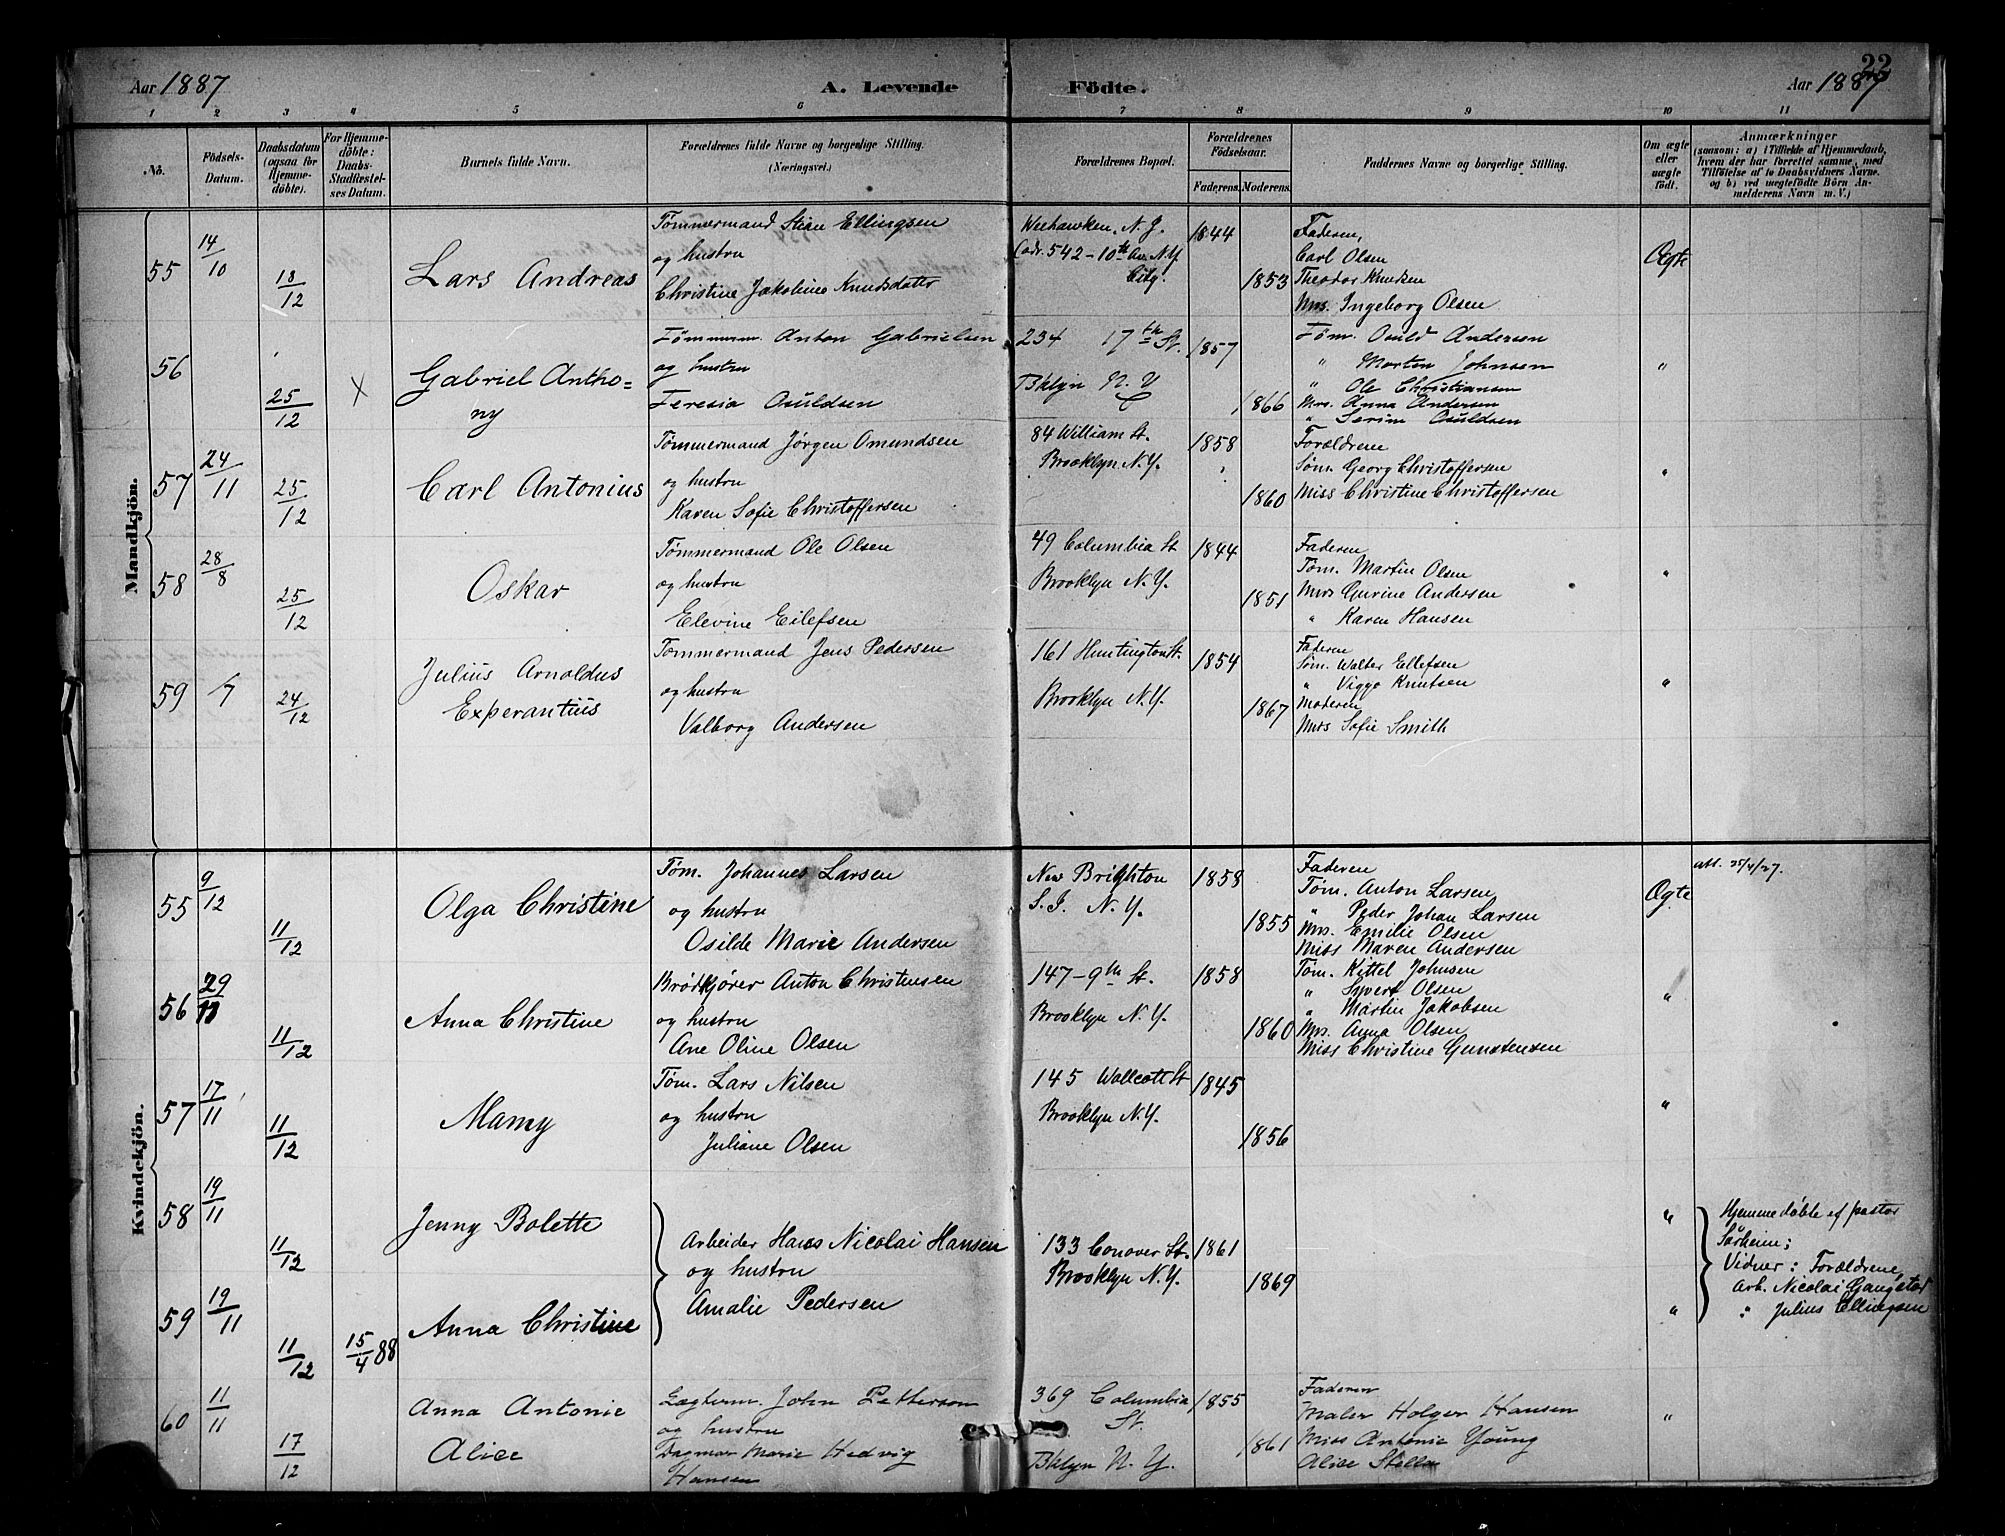 22
Aar 1887
A. Levende Födte.
Aar 1887
1 2 3 4 5 6 7 8 9 10 11
No.
Födsels-Datum.
Daabsdatum (ogsaa for Hjemme-döbte).
For Hjemme-döbte: Daabs-Stadfæstelses Datum.
Barnets fulde Navn.
Forældrenes fulde Navne og borgerlige Stilling. (Næringsvei.)
Forældrenes Bopæl.
Forældrenes Födselsaar.
Faderens. Moderens.
Faddernes Navne og borgerlige Stilling.
Om ægte eller uægte födt.
Anmærkninger
(saasom: a) i Tilfælde af Hjemmedaab, hvem der har forrettet samme, med Tilföielse af to Daabsvidners Navne. og b) ved uægtefödte Börn Anmelderens Navn m. V.)
Mandkjön.
55
14/10
18/12
Lars Andreas
Tømmermand Stian Ellingsen
og hustru
Christine Jakobine Knudsdatter
Weehawken, N. J.
(adr. 542 - 10th Av. N.Y.
City.
1844
1853
Faderen,
Carl Olsen
Theodor Knudsen
Mrs. Ingeborg Olsen
Ægte
56
25/12
X
Gabriel Antho=
ny
Tömmerm. Anton Gabrielsen
og hustru
Teresia Osuldsen
234 17th St.
Bklyn N. Y
1857
1866
Töm. Osuld Andersen
" Morten Johnsen
" Ole Christiansen
Mrs. Anna Andersen
" Serine Osuldsen
"
57
24/11
25/12
Carl Antonius
Tømmermand Jørgen Omundsen
og hustru
Karen Sofie Christoffersen
84 William St.
Brooklyn. N.Y.
1858
1860
Forældrene
Søm. Georg Christoffersen
Miss Christine Christoffersen
"
58
28/8
25/12
Oskar
Tømmermand Ole Olsen
og hustru
Elevine Eilefsen
49 Columbia St
Brooklyn N. Y.
1844
1851
Faderen
Tøm. Martin Olsen
Mrs Gurine Andersen
" Karen Hansen
"
59
/7
24/12
Julius Arnoldus
Experantius
Tømmermand Jens Pedersen
og hustru
Valborg Andersen
161 Huntington St.
Brooklyn N.Y.
1854
1867
Faderen
Søm. Walter Ellefsen
" Viggo Knutsen
Moderen
Mrs Sofie Smith
"
Kvindekjön.
55
9/12
11/12
Olga Christine
Tøm. Johannes Larsen
og hustru
Osilde Marie Andersen
New Brighton
S. I. N. Y.
1858
1855
Faderen
Tøm. Anton Larsen
" Peder Johan Larsen
Mrs. Emilie Olsen
Miss Maren Andersen
Ægte
att. 25/4/27.
56
29/11
11/12
Anna Christine
Brødkjører Anton Christensen
og hustru
Ane Oline Olsen
147 - 9th St.
Brooklyn N. Y.
1858
1860
Tøm. Kittel Johnsen
" Syvert Olsen
" Martin Jakobsen
Mrs. Anna Olsen
Miss Christine Gunstensen
"
57
17/11
11/12
Mamy
Tøm. Lars Nilsen
og hustru
Juliane Olsen
145 Wollcott St
Brooklyn N.Y.
1845
1856
"
58
19/11
11/12
Jenny Bolette
Arbeider Hans Nicolai Hansen
og hustru
Amalie Pedersen
133 Conover St.
Brooklyn N. Y.
1861
1869
"
Hjemmedøbte af pastor
Sårheim;
Vidner: Forældrene,
Arb. Nicolai Gangstad
" Julius Ellingsen
59
19/11
11/12
15/4 88
Anna Christine
"
60
11/11
17/12
Anna Antonie
Alice
Lægterm. John Petterson
og hustru
Dagmar Marie Hedvig
Hansen
369 Columbia
St.
Bklyn N. Y.
1855
1861
Faderen
Maler Holger Hansen
Miss Antonie Young
Alice Stella
"